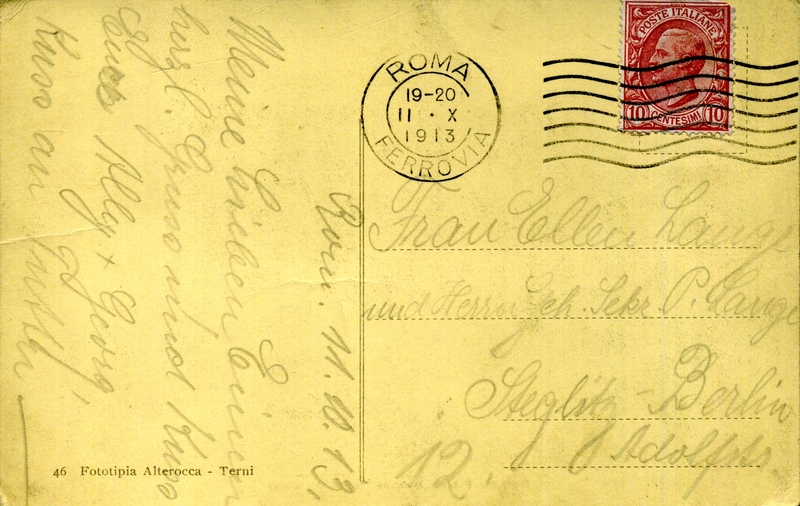 Rom. 11.10.13.
Meine lieben Einen
herzl. Gruss und Kuss
Euch Ally + Georg
Kuss an Mutti
46 Fototipia Alterocca - Terni
ROMA
19-20
11 · X
1913
FERROVIA
POSTE ITALIANE
10 CENTESIMI 10
Frau Ellen Lange
und Herrn Geh. Sekr. P. Lange
Steglitz-Berlin
12. Adolfstr.